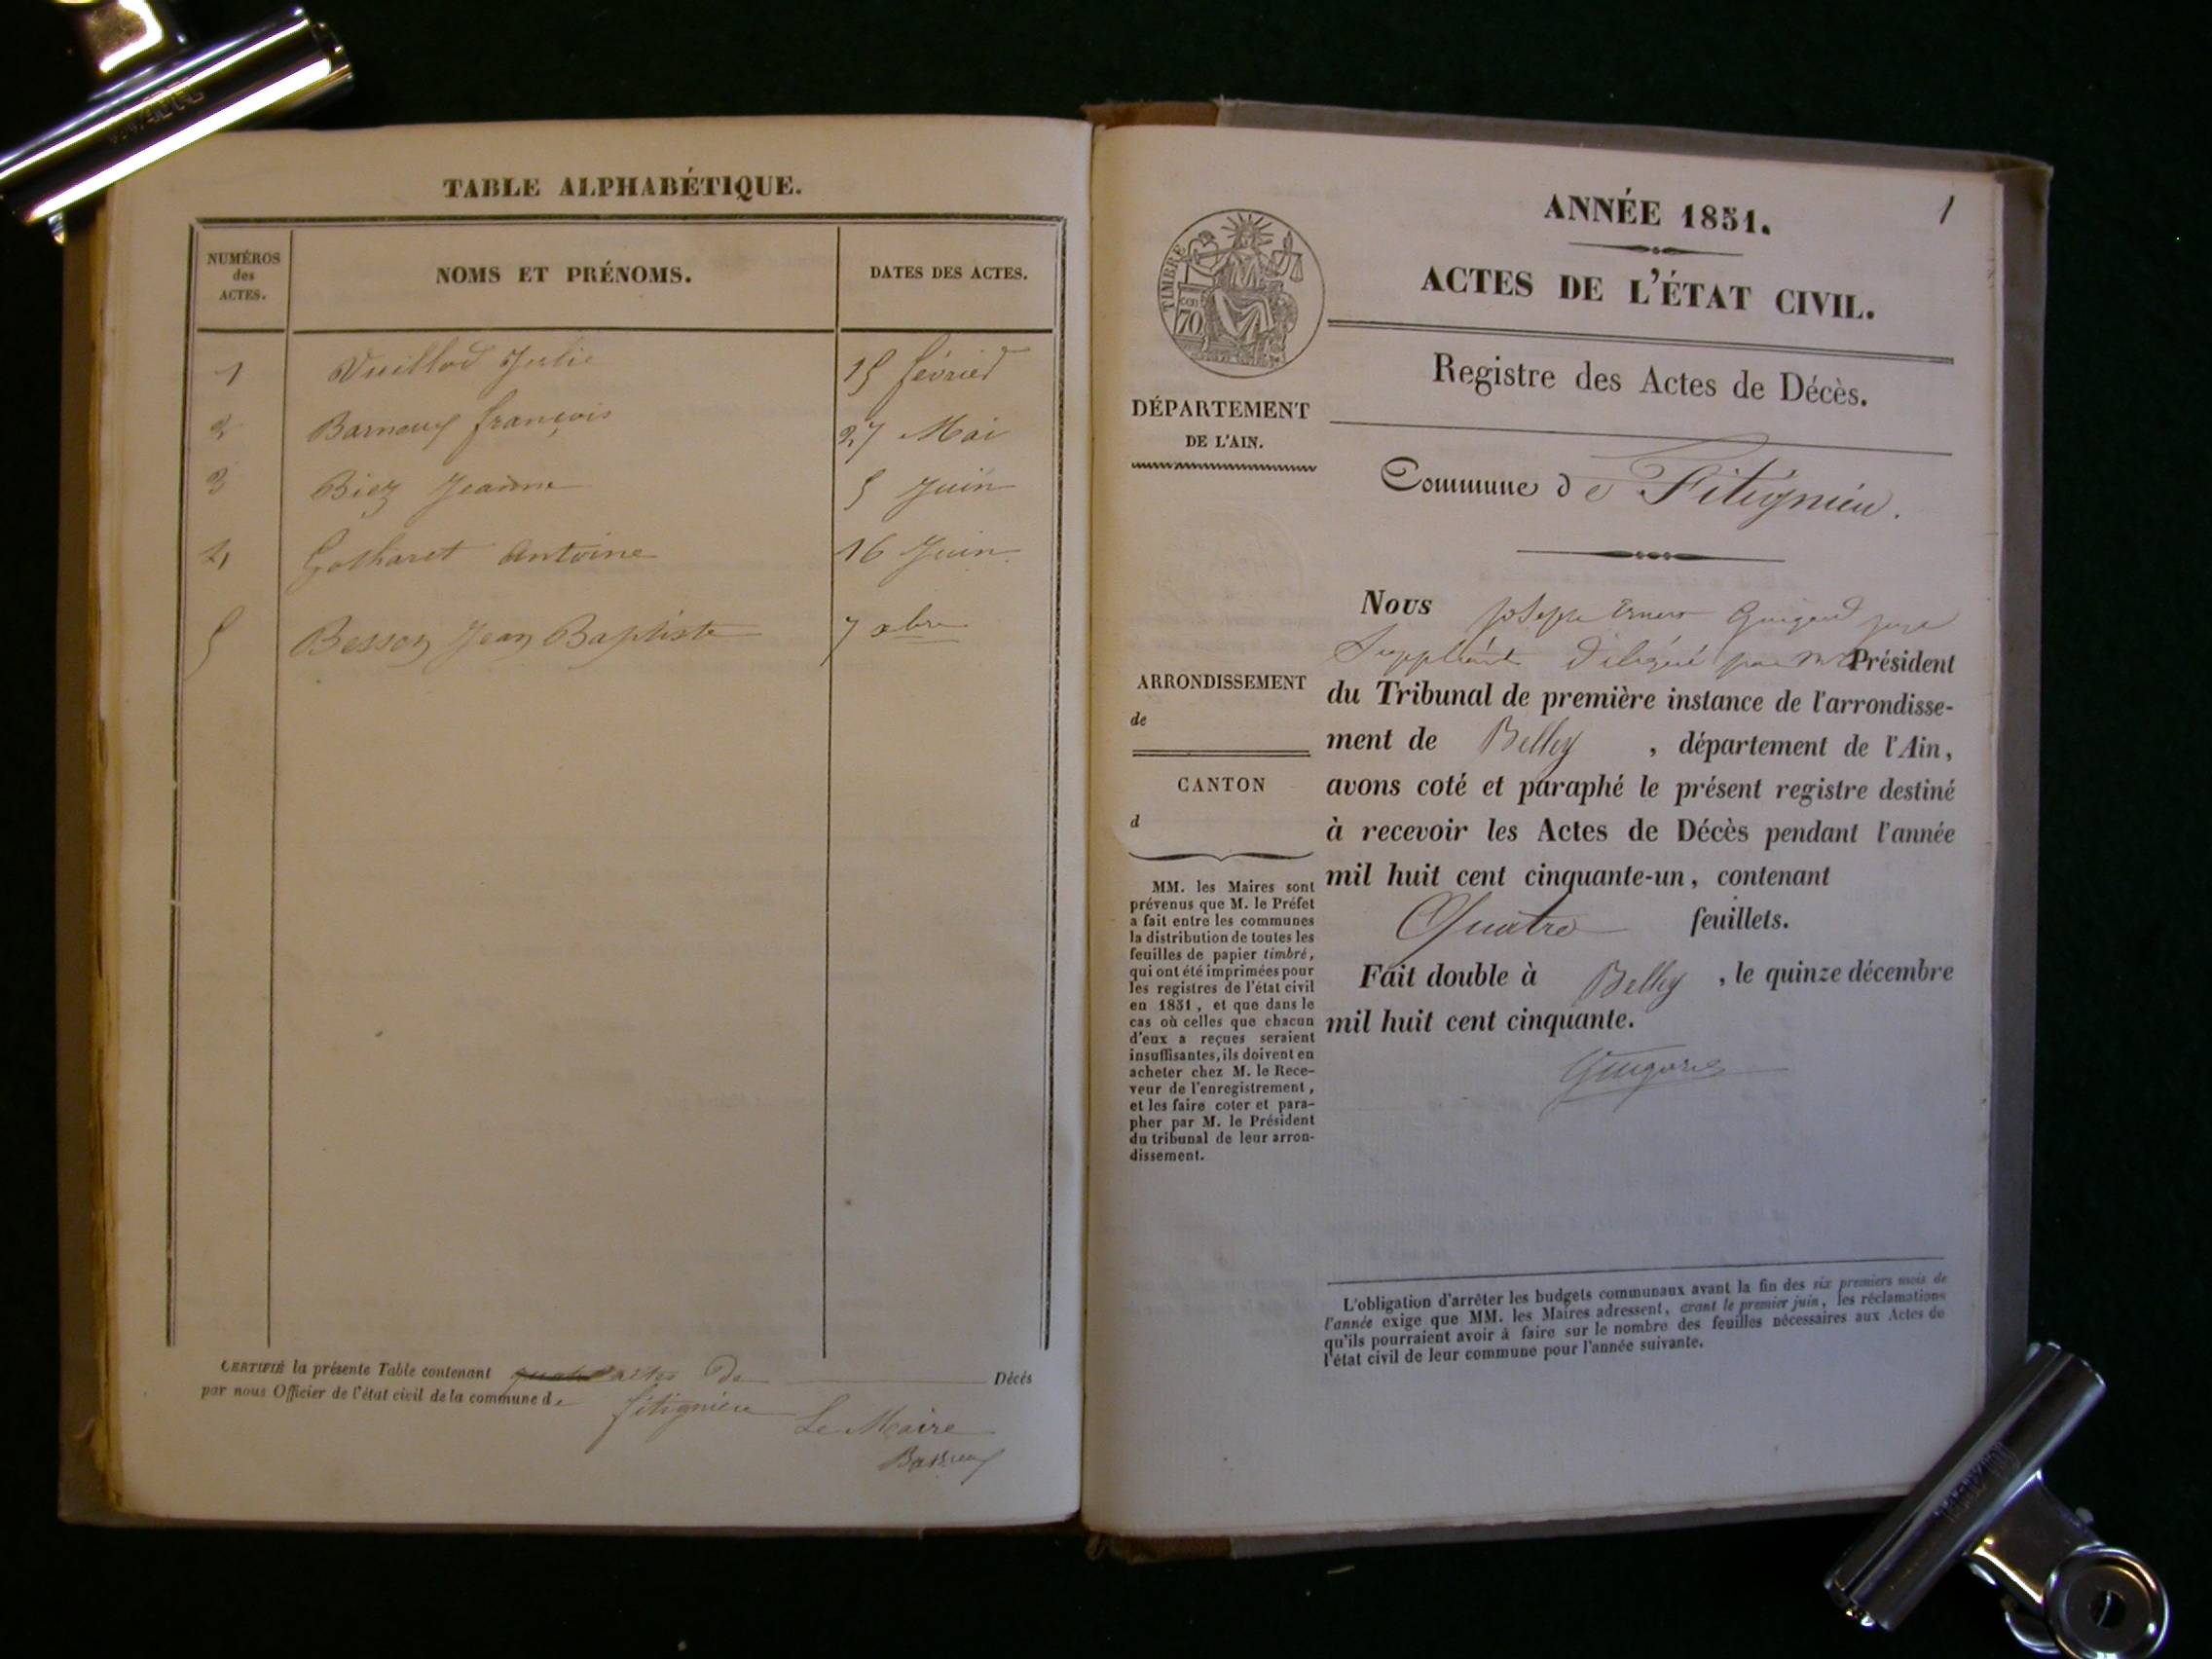 TABLE ALPHABÉTIQUE.
NUMÉROS
des
ACTES.
NOMS ET PRÉNOMS.
DATES DES ACTES.
1 Vuillod Julie 15 février
2 Barnoux françois 27 Mai
3 Biez Jeanne 5 Juin
4 Antoine 16 Juin
5 Besson Jean Baptiste 7 xbre
CERTIFIÉ la présente Table contenant actes De Décès
par nous Officier de l'état civil de la commune de fitignieu
Le Maire
1
ANNÉE 1851.
ACTES DE L'ÉTAT CIVIL.
TIMBRE
70
Registre des Actes de Décès.
DÉPARTEMENT
DE L'AIN.
Commune de Fitignieu.
ARRONDISSEMENT
de
CANTON
d
MM. les Maires sont
prévenus que M. le Préfet
a fait entre les communes
la distribution de toutes les
feuilles de papier timbré,
qui ont été imprimées pour
les registres de l'état civil
en 1851, et que dans le
cas où celles que chacun
d'eux a reçues seraient
insuffisantes, ils doivent en
acheter chez M. le Rece-
veur de l'enregistrement,
et les faire coter et para-
pher par M. le Président
du tribunal de leur arron-
dissement.
Nous Joseph juge
Suppléant Délégué par Mr le Président
du Tribunal de première instance de l'arrondisse-
ment de Belley, département de l'Ain,
avons coté et paraphé le présent registre destiné
à recevoir les Actes de Décès pendant l'année
mil huit cent cinquante-un, contenant
Quatre feuillets.
Fait double à Belley, le quinze décembre
mil huit cent cinquante.
L'obligation d'arrêter les budgets communaux avant la fin des six premiers mois de
l'année exige que MM. les Maires adressent, avant le premier juin, les réclamations
qu'ils pourraient avoir à faire sur le nombre des feuilles nécessaires aux Actes de
l'état civil de leur commune pour l'année suivante.